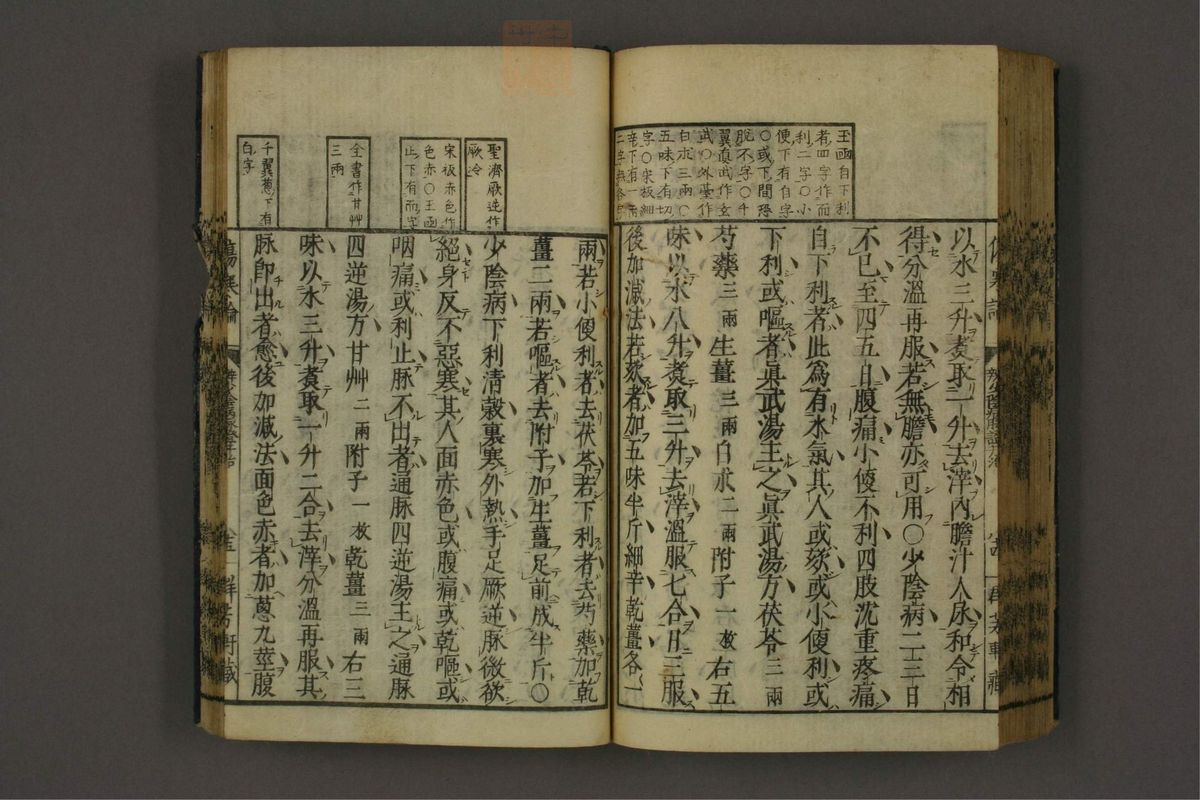 玉函自下利
者四字作而
利二字〇小
便下有自字
〇或下間恐
脫不字〇千
翼眞武作玄
武〇外臺作
白朮三兩〇
五味下有切
字〇宋板細
辛下有一兩
二字無各字
以水三升煑取一升去滓內膽汁人尿和令相
得分溫再服若無膽亦可用〇少陰病二三日
不已至四五日腹痛小便不利四肢沈重疼痛
自下利者此爲有水氣其人或欬或小便利或
下利或嘔者眞武湯主之眞武湯方茯苓三兩
芍藥三兩生薑三兩白朮二兩附子一枚右五
味以水八升煑取三升去滓溫服七合日三服
後加減法若欬者加五味半斤細辛乾薑各一
聖濟厥逆作
厥冷
宋板赤色作
色赤〇玉函
止下有而字
全書作甘艸
三兩
千翼蔥下有
白字
兩若小便利者去茯苓若下利者去芍藥加乾
薑二兩若嘔者去附子加生薑足前成半斤〇
少陰病下利清穀裏寒外熱手足厥逆脉微欲
絕身反不惡寒其人面赤色或腹痛或乾嘔或
咽痛或利止脉不出者通脉四逆湯主之通脉
四逆湯方甘艸二兩附子一枚乾薑三兩右三
味以水三升煑取一升二合去滓分溫再服其
脉卽出者愈後加減法面色赤者加蔥九莖腹
傷寒論